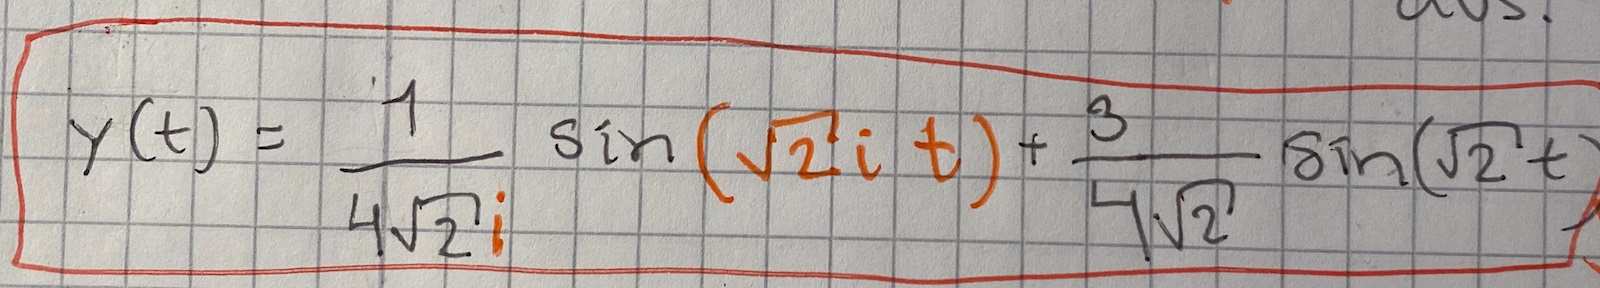 y(t) = 1/(4√2 i) sin(√2 i t) + 3/(4√2) sin(√2 t)